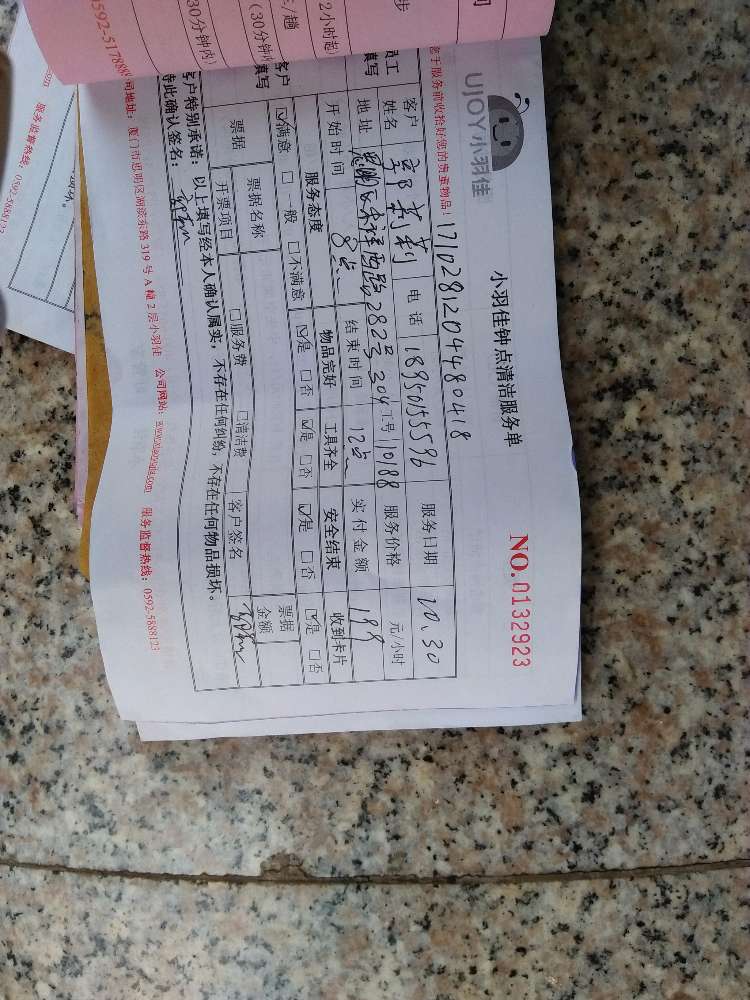 UJOY小羽佳
小羽佳钟点清洁服务单
NO.0132923
于服务前收拾好您的贵重物品! 1710281204480418
客户姓名 莉莉 电话 18950155596 服务日期 10.30
地址 282号304 工号 11088 服务价格 元/小时
开始时间 8点 结束时间 12点 实付金额 199
服务态度 物品完好 工具齐全 安全结束 收到卡片
☑满意 □一般 □不满意 ☑是 □否 ☑是 □否 ☑是 □否 ☑是 □否
票据 票据名称 票据金额
开票项目 □服务费 □清洁费 客户签名
客户特别承诺:以上填写经本人确认属实,不存在任何纠纷,不存在任何物品损坏。
持此确认签名:
司地址:厦门市思明区湖滨东路 319 号 A 幢 2 层小羽佳 公司网站: 服务监督热线:0592-5888123
员工填写
客户填写
2小时起
(30分钟
30分钟内)
0592-5178888
服务监督热线:0592-5888123